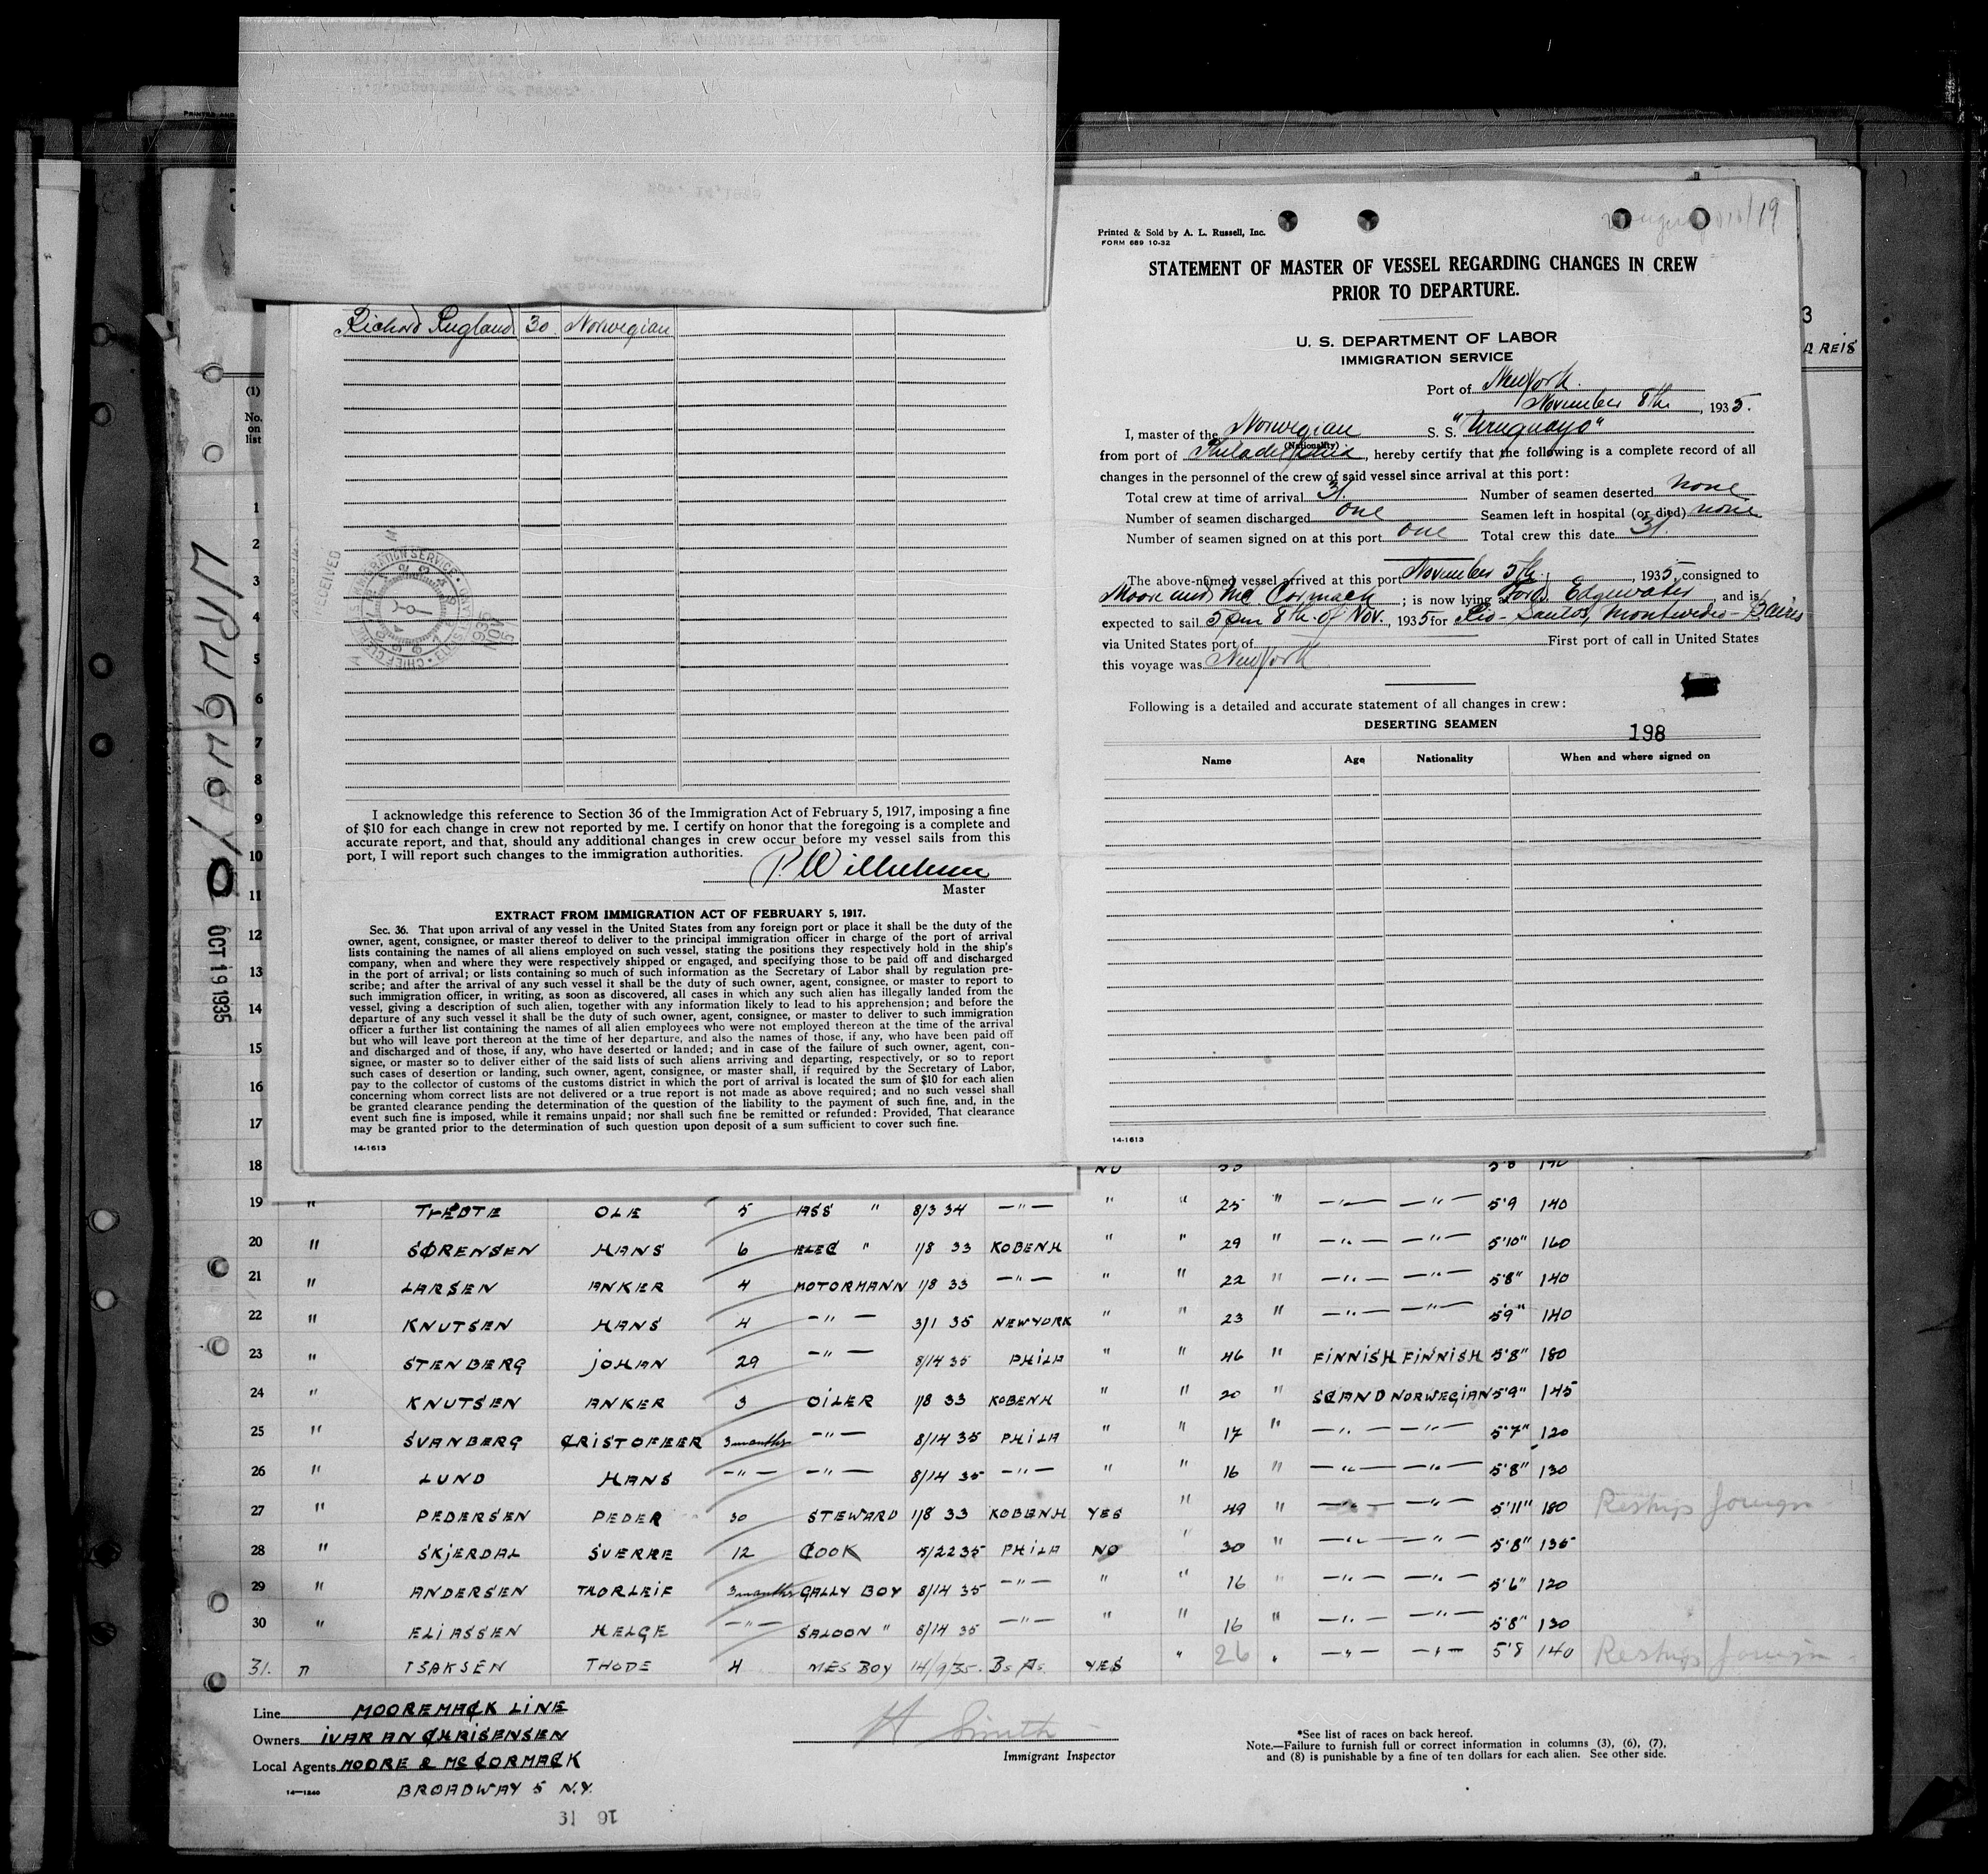 Richard Rugland 30 Norwegian
I acknowledge this reference to Section 36 of the Immigration Act of February 5, 1917, imposing a fine
of $10 for each change in crew not reported by me. I certify on honor that the foregoing is a complete and
accurate report, and that, should any additional changes in crew occur before my vessel sails from this
port, I will report such changes to the immigration authorities.
Master
EXTRACT FROM IMMIGRATION ACT OF FEBRUARY 5, 1917.
Sec. 36. That upon arrival of any vessel in the United States from any foreign port or place it shall be the duty of the
owner, agent, consignee, or master thereof to deliver to the principal immigration officer in charge of the port of arrival
lists containing the names of all aliens employed on such vessel, stating the positions they respectively hold in the ship's
company, when and where they were respectively shipped or engaged, and specifying those to be paid off and discharged
in the port of arrival; or lists containing so much of such information as the Secretary of Labor shall by regulation pre-
scribe; and after the arrival of any such vessel it shall be the duty of such owner, agent, consignee, or master to report to
such immigration officer, in writing, as soon as discovered, all cases in which any such alien has illegally landed from the
vessel, giving a description of such alien, together with any information likely to lead to his apprehension; and before the
departure of any such vessel it shall be the duty of such owner, agent, consignee, or master to deliver to such immigration
officer a further list containing the names of all alien employees who were not employed thereon at the time of the arrival
but who will leave port thereon at the time of her departure, and also the names of those, if any, who have been paid off
and discharged and of those, if any, who have deserted or landed; and in case of the failure of such owner, agent, con-
signee, or master so to deliver either of the said lists of such aliens arriving and departing, respectively, or so to report
such cases of desertion or landing, such owner, agent, consignee, or master shall, if required by the Secretary of Labor,
pay to the collector of customs of the customs district in which the port of arrival is located the sum of $10 for each alien
concerning whom correct lists are not delivered or a true report is not made as above required; and no such vessel shall
be granted clearance pending the determination of the question of the liability to the payment of such fine, and, in the
event such fine is imposed, while it remains unpaid; nor shall such fine be remitted or refunded: Provided, That clearance
may be granted prior to the determination of such question upon deposit of a sum sufficient to cover such fine.
14-1613
Printed & Sold by A. L. Russell, Inc.
FORM 689 10-32
STATEMENT OF MASTER OF VESSEL REGARDING CHANGES IN CREW
PRIOR TO DEPARTURE.
U. S. DEPARTMENT OF LABOR
IMMIGRATION SERVICE
Port of New York
November 8th, 1935.
I, master of the Norwegian S. S. "Uruguayo"
(Nationality)
from port of Philadelphia, hereby certify that the following is a complete record of all
changes in the personnel of the crew of said vessel since arrival at this port:
Total crew at time of arrival 31. Number of seamen deserted none
Number of seamen discharged one Seamen left in hospital (or died) none
Number of seamen signed on at this port one Total crew this date 31.
The above-named vessel arrived at this port November 5th, 1935, consigned to
Moore and Mc Cormack; is now lying at Fords Edgewater, and is
expected to sail 5 pm 8th of Nov., 1935 for Rio - Santos, Montevideo - Baires
via United States port of First port of call in United States
this voyage was New York
Following is a detailed and accurate statement of all changes in crew:
DESERTING SEAMEN
198
Name Age Nationality When and where signed on
14-1613
3
URUGUAYO
OCT 19 1935
(1)
No.
on
list
1
2
3
4
5
6
7
8
9
10
11
12
13
14
15
16
17
18
19 " OLE 5 ASS " 8/3 34 —"— " " 25 " —"— —"— 5'9 140
20 " SØRENSEN HANS 6 ELEC " 1/8 33 KOBENH " " 29 " —"— —"— 5'10" 160
21 " LARSEN ANKER 4 MOTORMANN 1/8 33 —"— " " 22 " —"— —"— 5'8" 140
22 " KNUTSEN HANS 4 —"— 3/1 35 NEWYORK " " 23 " —"— —"— 5'9" 140
23 " STENBERG JOHAN 29 —"— 8/14 35 PHILA " " 46 " FINNISH FINNISH 5'8" 180
24 " KNUTSEN ANKER 3 OILER 1/8 33 KOBENH " " 20 " SCAND NORWEGIAN 5'9" 145
25 " SVANBERG CRISTOFEER 3 months —"— 8/14 35 PHILA " " 17 " —"— —"— 5'7" 120
26 " LUND HANS —"— —"— 8/14 35 —"— " " 16 " —"— —"— 5'8" 130
27 " PEDERSEN PEDER 30 STEWARD 1/8 33 KOBENH YES " 49 " —"— —"— 5'11" 180 Reships foreign
28 " SKJERDAL SVERRE 12 COOK 5/22 35 PHILA NO " 30 " —"— —"— 5'8" 135
29 " ANDERSEN THORLEIF 3 months GALLY BOY 8/14 35 —"— " " 16 " —"— —"— 5'6" 120
30 " ELIASSEN HELGE —"— SALOON " 8/14 35 —"— " " 16 " —"— —"— 5'8" 130
31. " ISAKSEN THODE 4 MES BOY 14/9/35. Bs As. YES " 26 " —"— —"— 5'8 140 Reships foreign
Line MOOREMACK LINE
Owners IVAR AN CHRISENSEN
Local Agents MOORE & Mc CORMACK
BROADWAY 5 N.Y.
14—1240
H Smith
Immigrant Inspector
*See list of races on back hereof.
Note.—Failure to furnish full or correct information in columns (3), (6), (7),
and (8) is punishable by a fine of ten dollars for each alien. See other side.